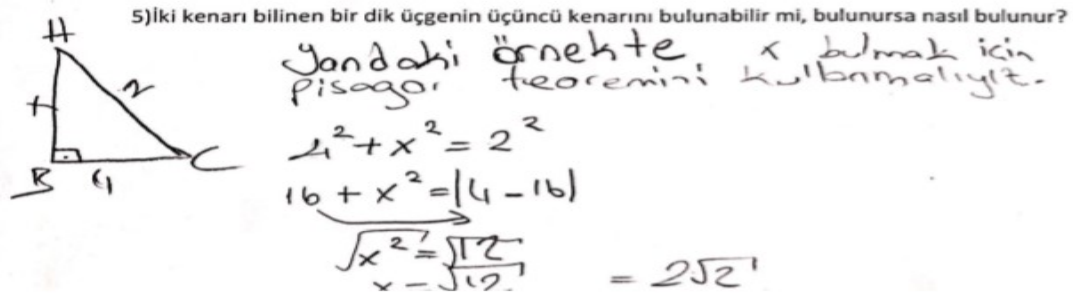 5)İki kenarı bilinen bir dik üçgenin üçüncü kenarını bulunabilir mi, bulunursa nasıl bulunur?
Yandaki örnekte x bulmak için
pisagor teoremini kullanmalıyız.
H
2
x
B 4 C
4² + x² = 2²
16 + x² = |4 - 16|
√x² = √12
x = √12 = 2√2